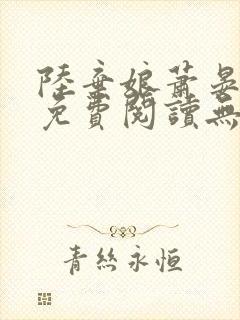 陸棄娘蕭晏
免費閱讀無
青絲永恒